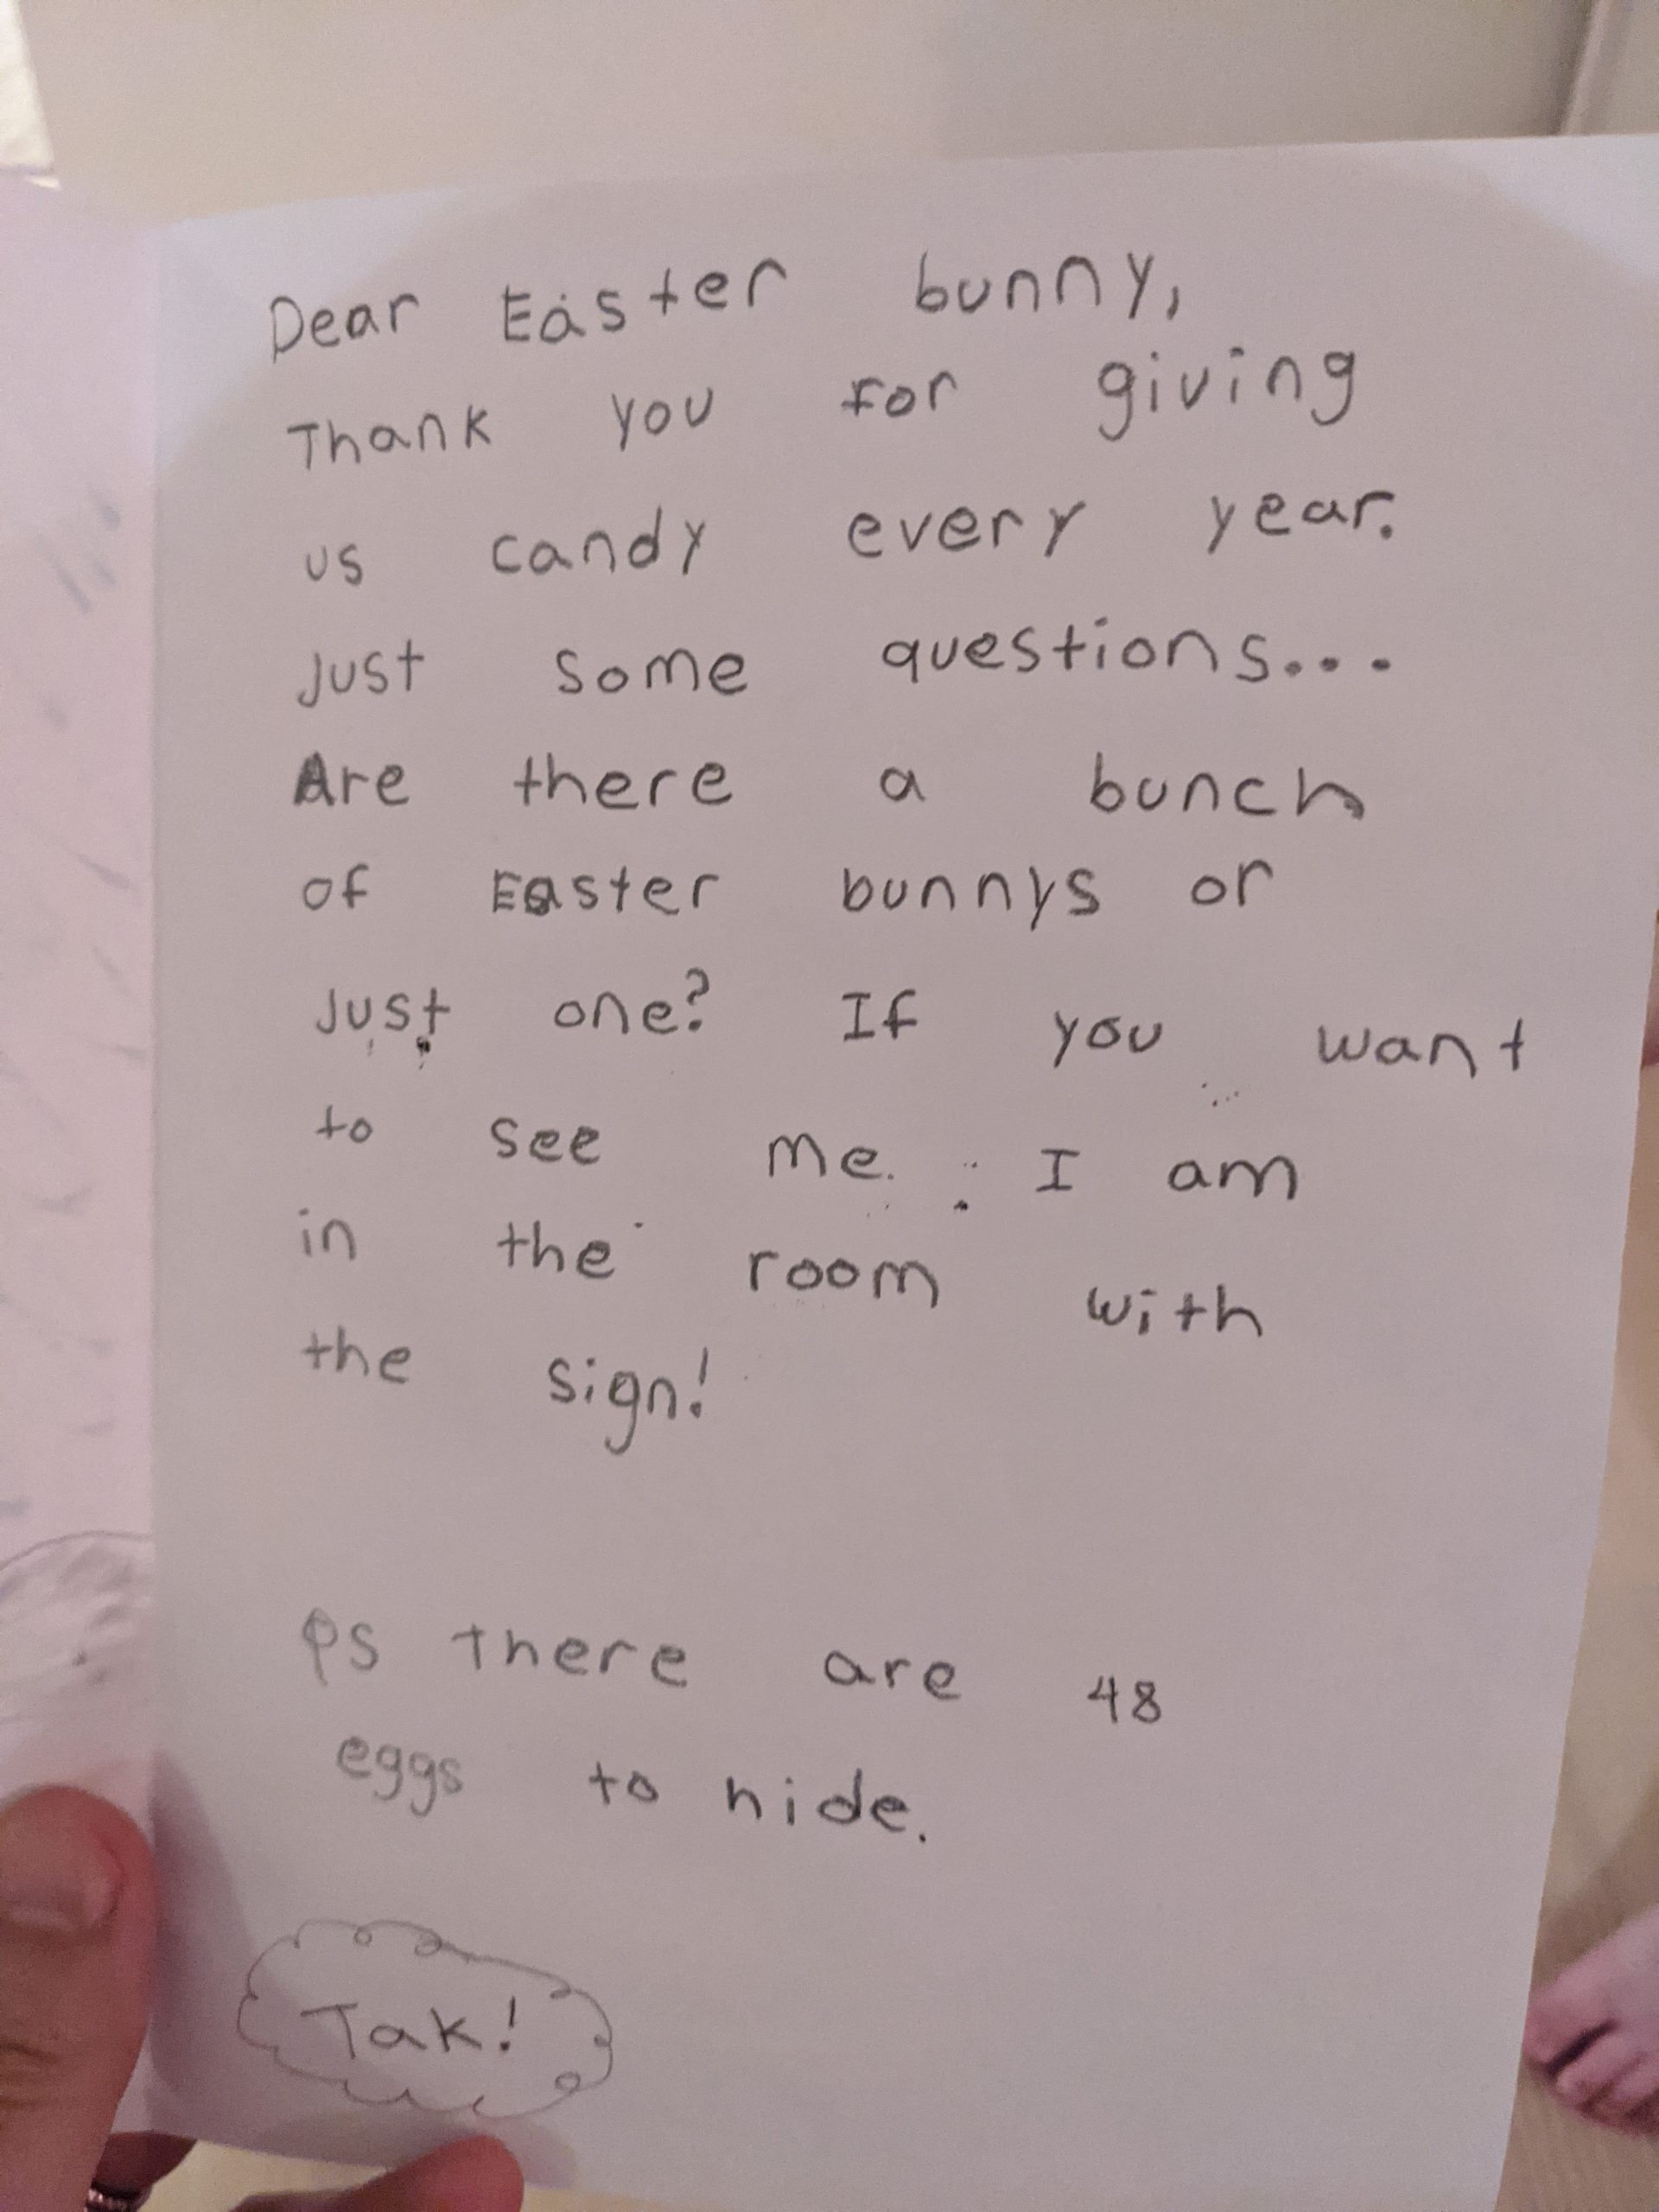 Dear Easter bunny,
Thank you for giving
us candy every year.
Just some questions...
Are there a bunch
of Easter bunnys or
Just one? If you want
to see me. I am
in the room with
the sign!
Ps There are 48
eggs to hide.
Tak!